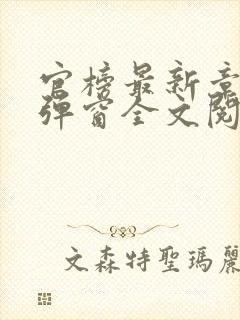 官榜最新章
彈窗全文閱
文森特聖瑪麗